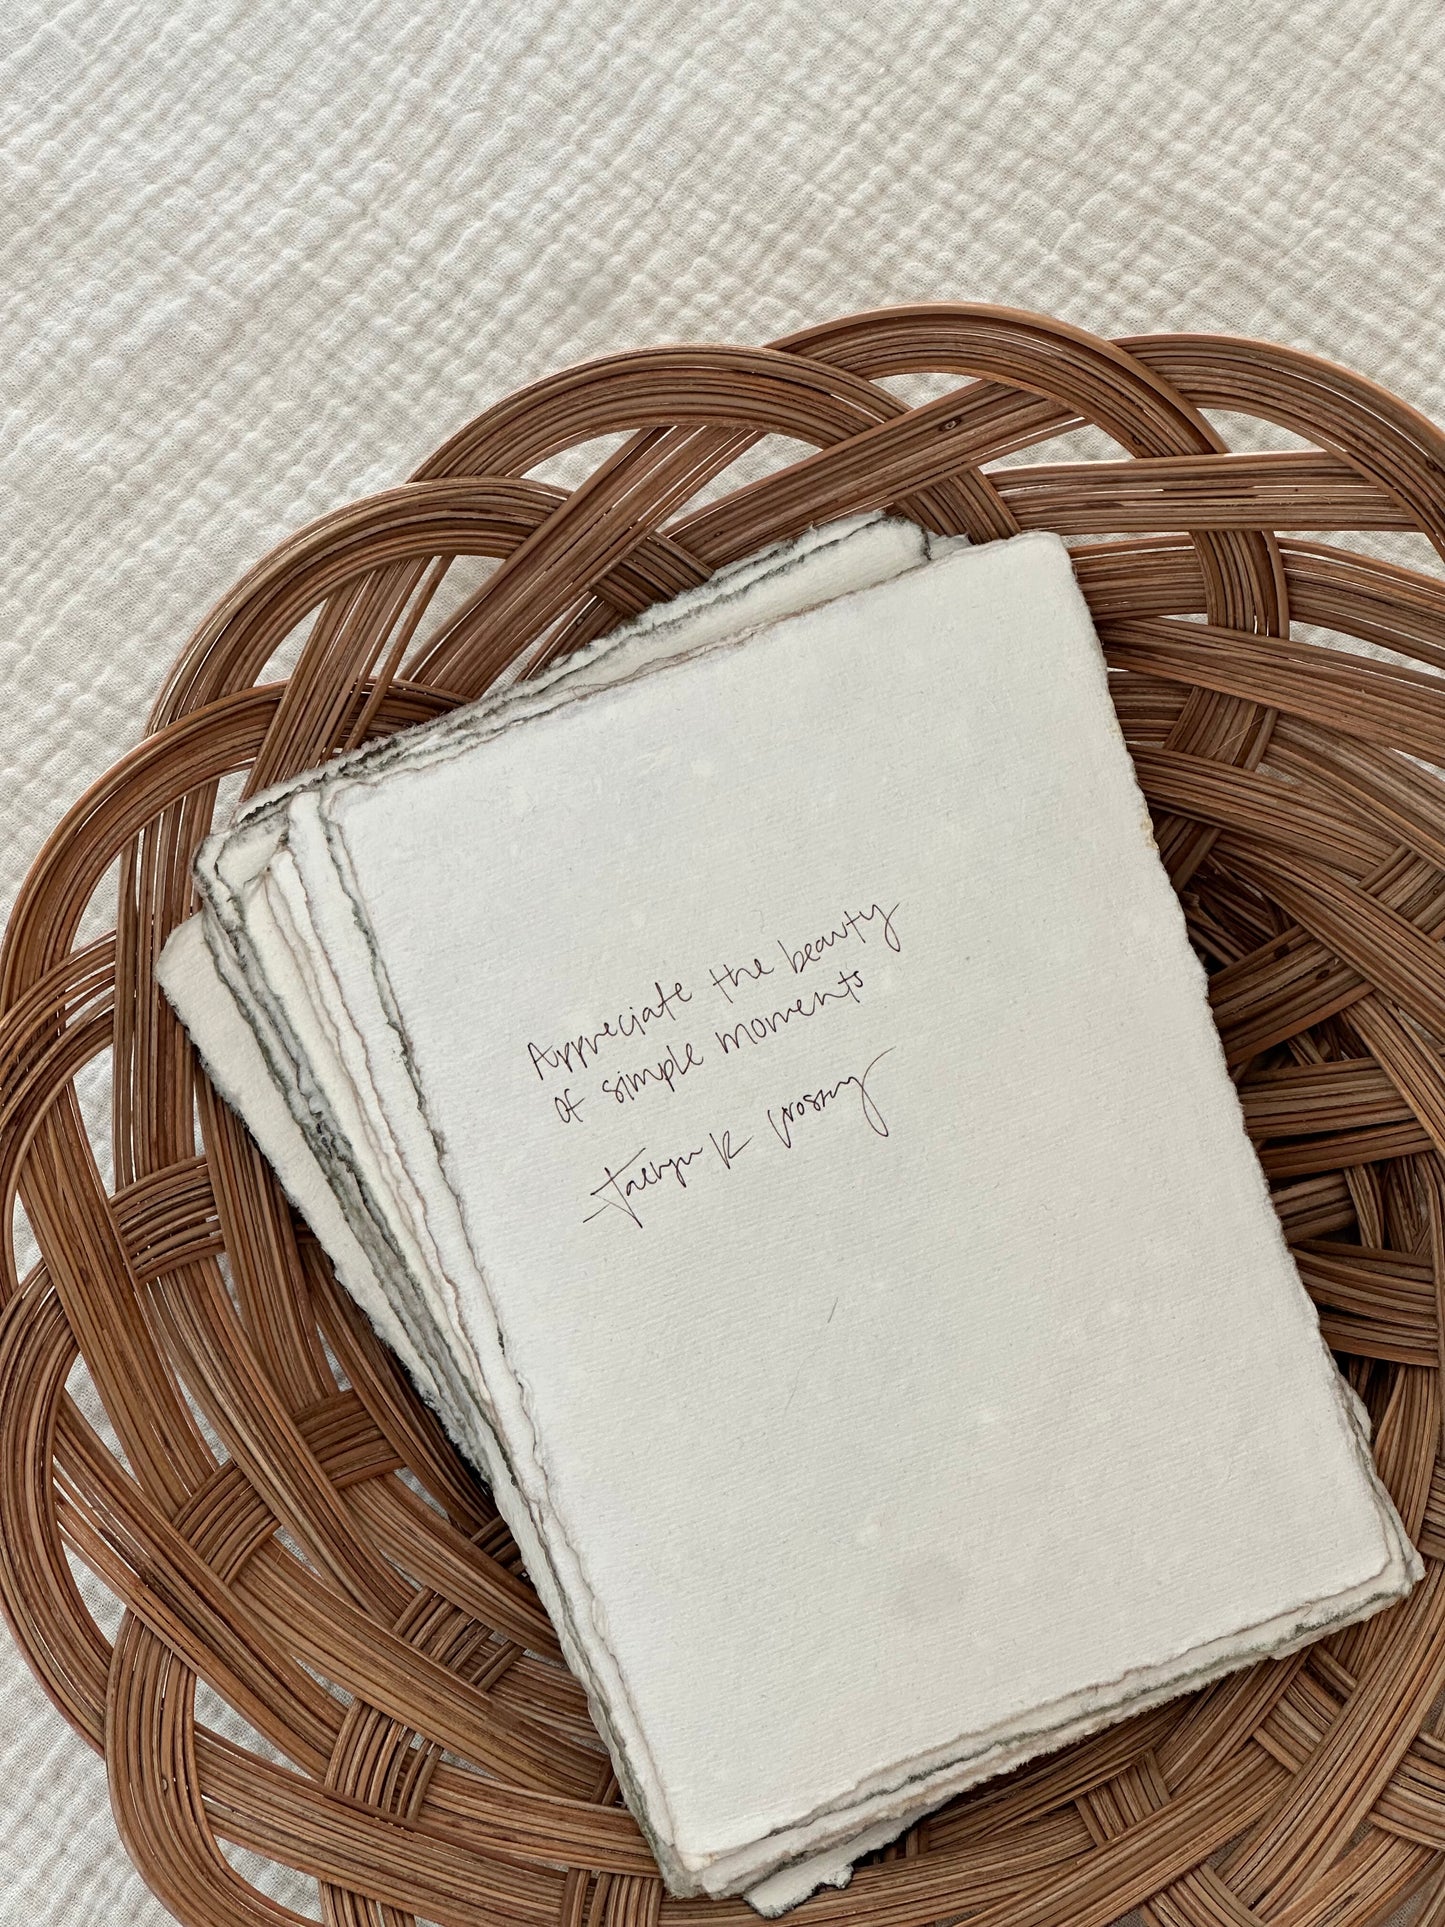 Appreciate the beauty
of simple moments
Taelyn K Crossny